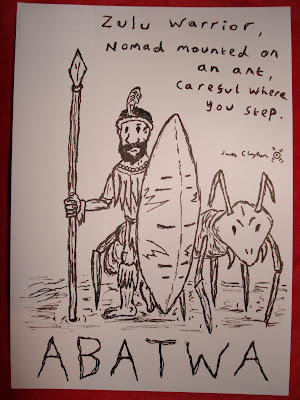 Zulu Warrior,
Nomad mounted on
an ant,
Careful Where
you Step.
James Clayton
ABATWA